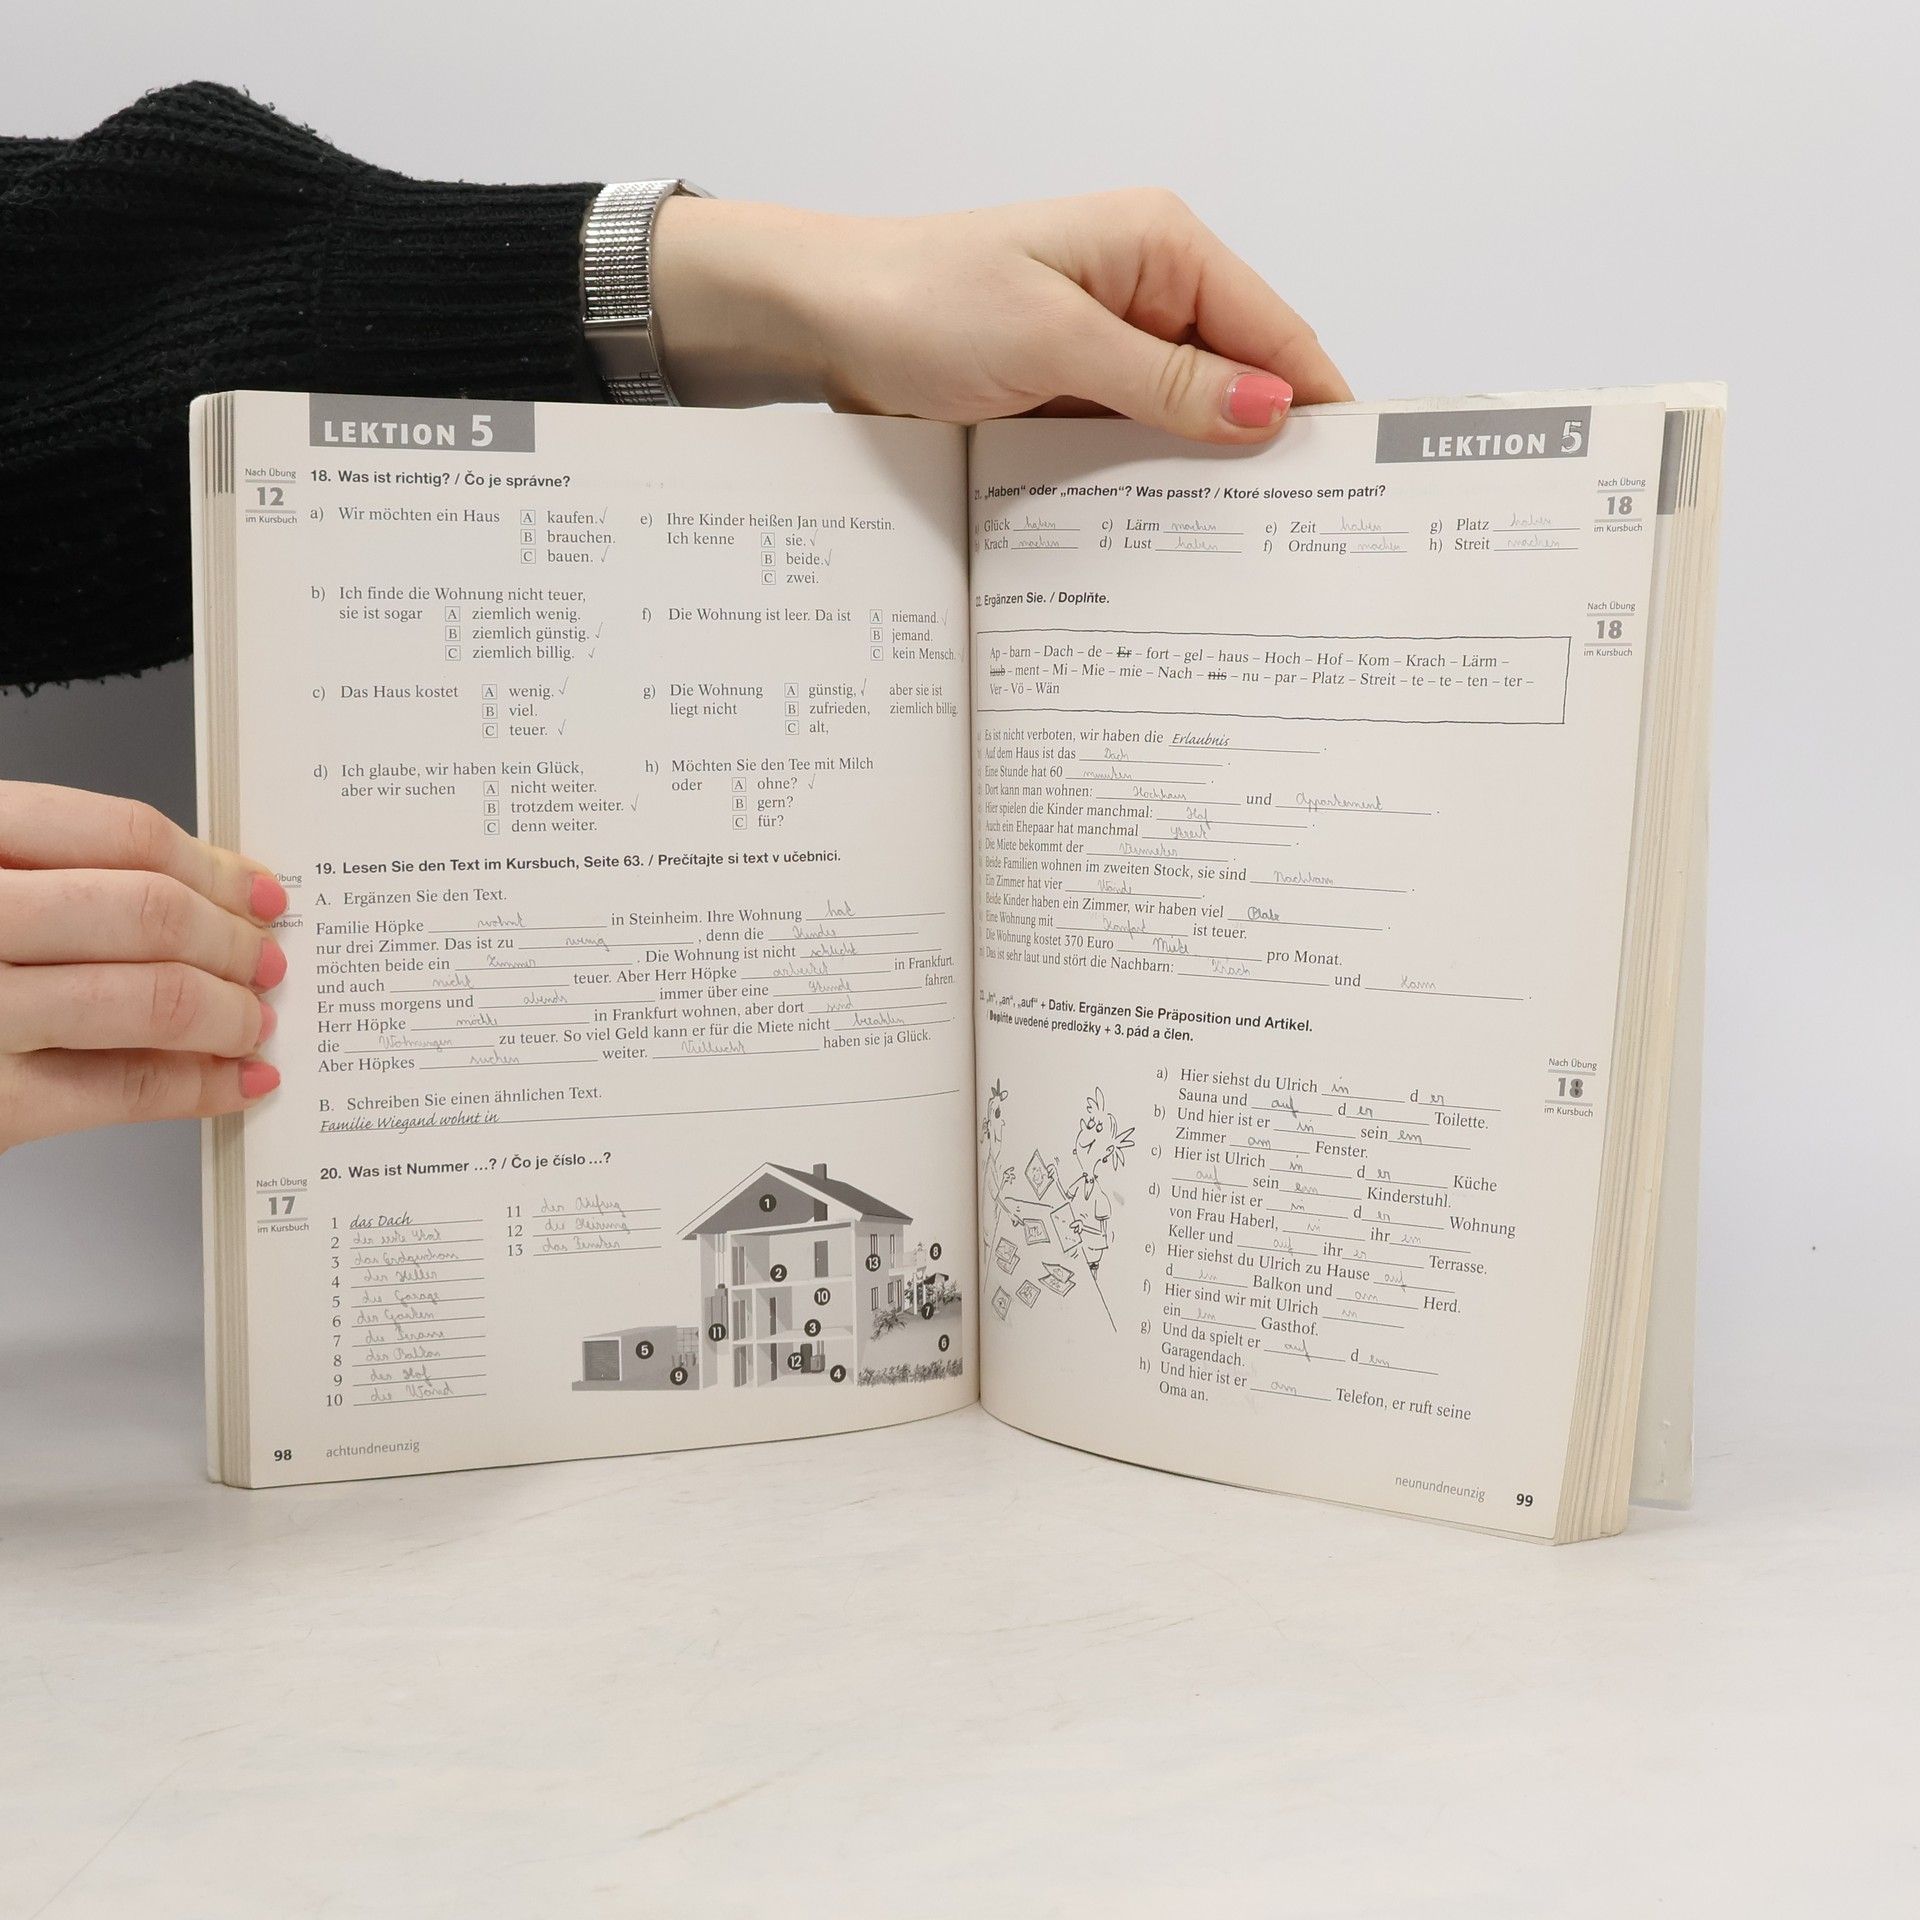 LEKTION 5
Nach Übung
12
im Kursbuch
18. Was ist richtig? / Čo je správne?
a) Wir möchten ein Haus A kaufen. ✓
B brauchen.
C bauen. ✓
b) Ich finde die Wohnung nicht teuer,
sie ist sogar A ziemlich wenig.
B ziemlich günstig. ✓
C ziemlich billig. ✓
c) Das Haus kostet A wenig. ✓
B viel.
C teuer. ✓
d) Ich glaube, wir haben kein Glück,
aber wir suchen A nicht weiter.
B trotzdem weiter. ✓
C denn weiter.
e) Ihre Kinder heißen Jan und Kerstin.
Ich kenne A sie. ✓
B beide. ✓
C zwei.
f) Die Wohnung ist leer. Da ist A niemand. ✓
B jemand.
C kein Mensch.
g) Die Wohnung A günstig, ✓ aber sie ist
liegt nicht B zufrieden, ziemlich billig.
C alt,
h) Möchten Sie den Tee mit Milch
oder A ohne? ✓
B gern?
C für?
Übung
ursbuch
19. Lesen Sie den Text im Kursbuch, Seite 63. / Prečítajte si text v učebnici.
A. Ergänzen Sie den Text.
Familie Höpke wohnt in Steinheim. Ihre Wohnung hat
nur drei Zimmer. Das ist zu wenig, denn die Kinder
möchten beide ein Zimmer. Die Wohnung ist nicht schlecht
und auch nicht teuer. Aber Herr Höpke arbeitet in Frankfurt.
Er muss morgens und abends immer über eine Stunde fahren.
Herr Höpke möchte in Frankfurt wohnen, aber dort sind
die Wohnungen zu teuer. So viel Geld kann er für die Miete nicht bezahlen.
Aber Höpkes suchen weiter. Vielleicht haben sie ja Glück.
B. Schreiben Sie einen ähnlichen Text.
Familie Wiegand wohnt in
Nach Übung
17
im Kursbuch
20. Was ist Nummer ...? / Čo je číslo ...?
1 das Dach
2 der erste
3 das
4 der Keller
5 die Garage
6 der Garten
7 die
8 der
9 der Hof
10 die Wand
11 der
12 die Heizung
13 das Fenster
1
2
13
8
10
7
11
3
5
6
12
4
9
98 achtundneunzig
LEKTION 5
21. „Haben“ oder „machen“? Was passt? / Ktoré sloveso sem patrí?
Nach Übung
18
im Kursbuch
Glück haben c) Lärm machen e) Zeit haben g) Platz haben
Krach machen d) Lust haben f) Ordnung machen h) Streit machen
22. Ergänzen Sie. / Doplňte.
Nach Übung
18
im Kursbuch
Ap – barn – Dach – de – Er – fort – gel – haus – Hoch – Hof – Kom – Krach – Lärm –
laub – ment – Mi – Mie – mie – Nach – nis – nu – par – Platz – Streit – te – te – ten – ter –
Ver – Vö – Wän
Es ist nicht verboten, wir haben die Erlaubnis.
Auf dem Haus ist das Dach.
Eine Stunde hat 60 minuten.
Dort kann man wohnen: Hochhaus und Appartement.
Hier spielen die Kinder manchmal: Hof.
Auch ein Ehepaar hat manchmal Streit.
Die Miete bekommt der Vermieter.
Beide Familien wohnen im zweiten Stock, sie sind Nachbarn.
Ein Zimmer hat vier Wände.
Beide Kinder haben ein Zimmer, wir haben viel Platz.
Eine Wohnung mit Komfort ist teuer.
Die Wohnung kostet 370 Euro Miete pro Monat.
Das ist sehr laut und stört die Nachbarn: Krach und
„in“, „an“, „auf“ + Dativ. Ergänzen Sie Präposition und Artikel.
/ Doplňte uvedené predložky + 3. pád a člen.
Nach Übung
18
im Kursbuch
a) Hier siehst du Ulrich in d er
Sauna und auf d er Toilette.
b) Und hier ist er in sein em
Zimmer am Fenster.
c) Hier ist Ulrich in d er Küche
auf sein em Kinderstuhl.
d) Und hier ist er in d er Wohnung
von Frau Haberl, in ihr em
Keller und auf ihr er Terrasse.
e) Hier siehst du Ulrich zu Hause auf
d em Balkon und am Herd.
f) Hier sind wir mit Ulrich in
ein em Gasthof.
g) Und da spielt er auf d em
Garagendach.
h) Und hier ist er am Telefon, er ruft seine
Oma an.
neunundneunzig 99